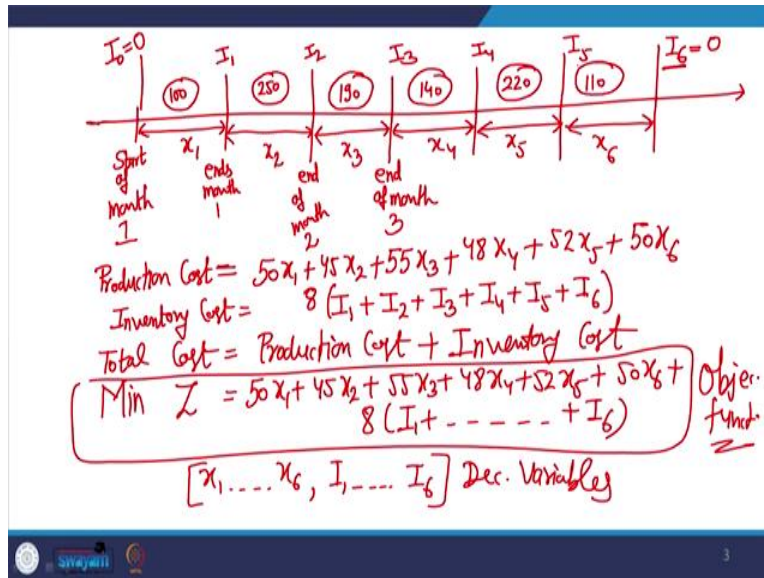 I₀=0 I₁ I₂ I₃ I₄ I₅ I₆=0
100 250 190 140 220 110
x₁ x₂ x₃ x₄ x₅ x₆
Start of month 1
ends month 1
end of month 2
end of month 3
Production Cost = 50x₁+45x₂+55x₃+48x₄+52x₅+50x₆
Inventory Cost = 8(I₁+I₂+I₃+I₄+I₅+I₆)
Total Cost = Production Cost + Inventory Cost
Min Z = 50x₁+45x₂+55x₃+48x₄+52x₅+50x₆+
8(I₁+------+I₆)
Objec. funct.
[x₁....x₆, I₁....I₆] Dec. Variables
swayam
3